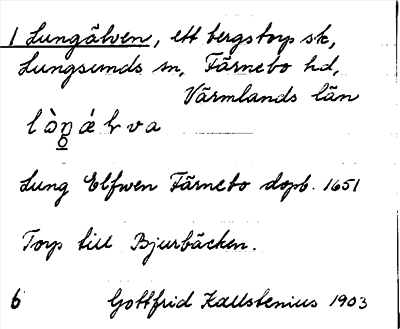 1 Lungälven, ett bergstorp sk,
Lungsunds sn, Färnebo hd,
Värmlands län
lὰŋálva
Lung Elfwen Färnebo dopb. 1651
Torp till Bjurbäcken.
6 Gottfrid Kallstenius 1903